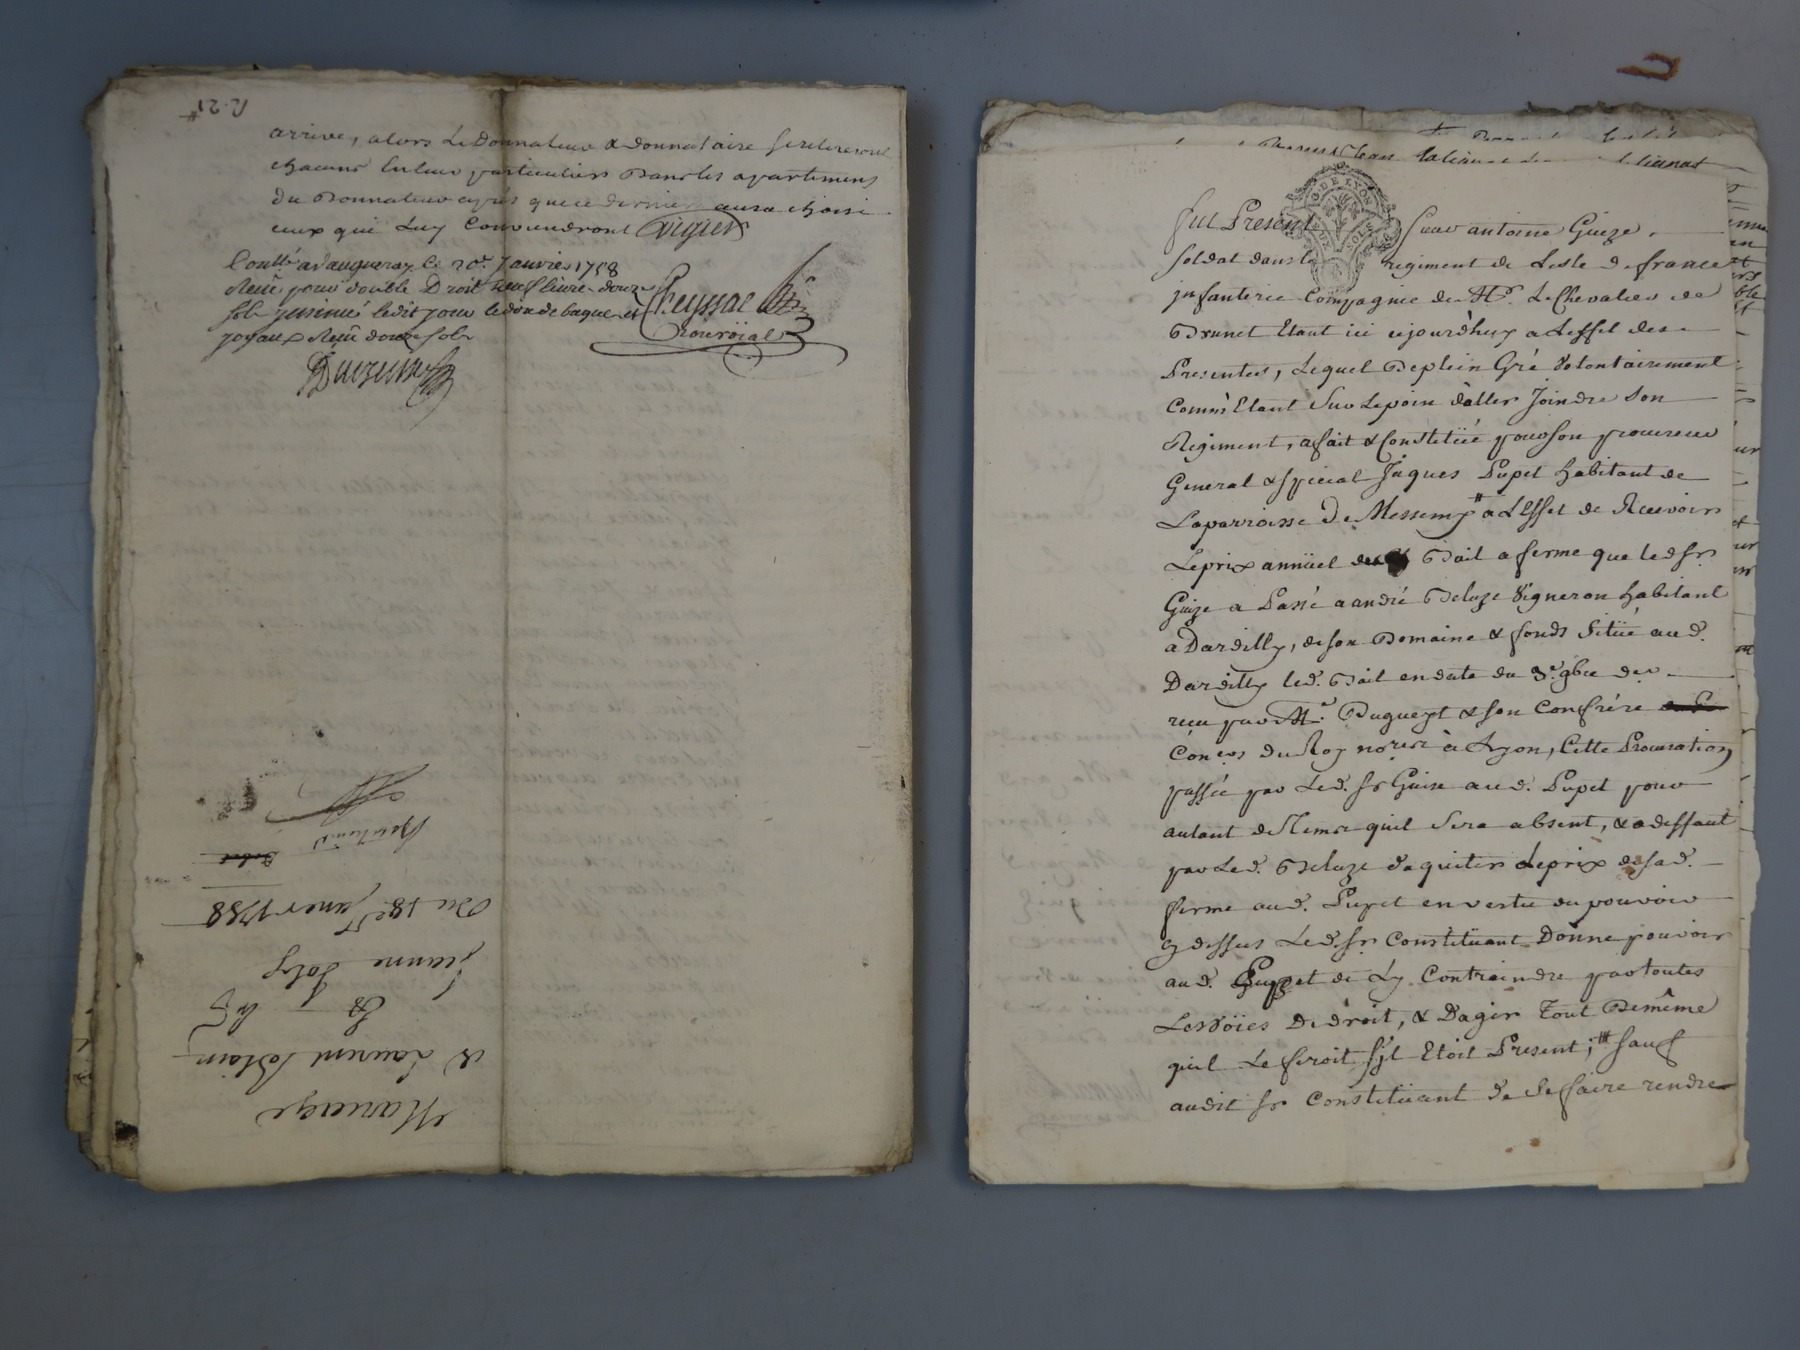 R. 21#
arrive, alors Le Donnateur & donnataire se retireront
chacuns en leur particuliers Dans les apartemens
du Donnateur après que ce dernier aura choisi
ceux qui Luy Conviendront Vigier
Conllé a Vaugneray le 20e Janvier 1758
Reçu pour double Droit neuf livre douze
sols insinué ledit jour le don de bagues et
joyaux Reçu douze sols
Cheyssac
Rouroial
Mariage
d Laurent
&
Jeanne Joly
Du 18e Janer 1758
Fut Present Sieur antoine Guize,
soldat dans le regiment de Lisle de france
jnfanterie Compagnie de Mr. Le Chevalier de
Brunet Etant ici cejourd'huy a Leffet des
Presentes, Lequel De plein Gré Volontairement
Comm'Etant Sur Le poin d'aller Joindre Son
Regiment, a fait & Constitüé pour son procureur
General & special Jâques Pupet habitant de
La parroisse De Messemy # a L'Effet de Recevoir
Le prix annüel du Bail a ferme que led. sr.
Guize a Passé a andré Beluze Vigneron habitant
a Dardilly, de son Domaine & fonds Sitüé aud.
Dardilly led. Bail en date du 3e. 9bre der
reçu par Me. Dugueyt & son Confrére
Con.ers du Roy no.res à Lyon, Cette Procuration
passée par Led. sr Guise aud. Pupet pour
autant de Tems quil Sera absent, & a deffaut
par Led. Beluze d'aquiter Le prix de sad.
ferme aud. Pupet en vertu du pouvoir
cy dessus Led. sr. Constitüant Donne pouvoir
aud. Puppet de Ly Contraindre par toutes
Les Voïes De droit, & D'agir Tout De même
quil Le feroit s'jl Etoit Present, # sauf
audit sr Constitüant de Se faire rendre